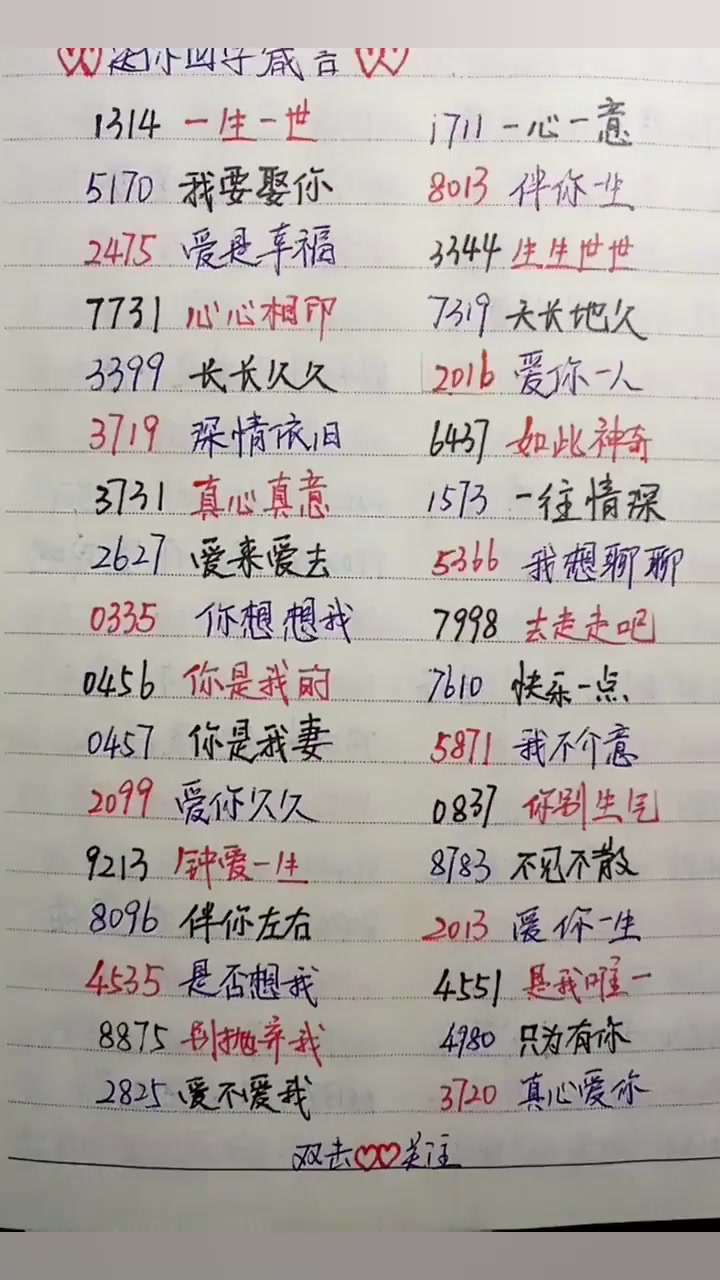 送你四字箴言
1314 一生一世 1711 一心一意
5170 我要娶你 8013 伴你一生
2475 爱是幸福 3344 生生世世
7731 心心相印 7319 天长地久
3399 长长久久 2016 爱你一人
3719 深情依旧 6437 如此神奇
3731 真心真意 1573 一往情深
2627 爱来爱去 5366 我想聊聊
0335 你想想我 7998 去走走吧
0456 你是我的 7610 快乐一点
0457 你是我妻 5871 我不介意
2099 爱你久久 0837 你别生气
9213 钟爱一生 8783 不见不散
8096 伴你左右 2013 爱你一生
4535 是否想我 4551 是我唯一
8875 别抛弃我 4980 只为有你
2825 爱不爱我 3720 真心爱你
双击 关注